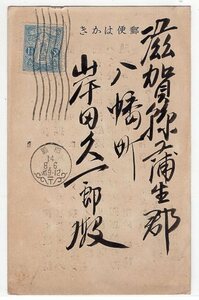 郵便はかき
滋賀縣蒲生郡
八幡町
岸田久一郎殿
14